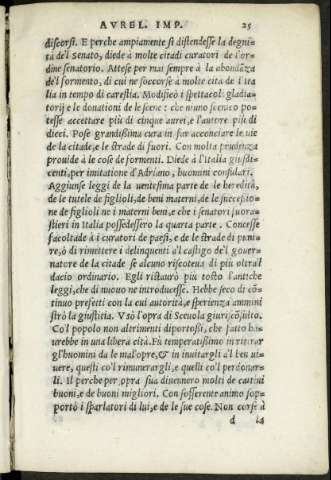 AVREL. IMP. 25
discorsi. E perche ampiamente si distendesse la degni=
tà de'l Senato, diede à molte citadi curatori de l'or=
dine senatorio. Attese per mai sempre à la abondāza
de'l formento, di cui ne soccorse à molte cità de l'Ita
lia in tempo di carestia. Modificò i spettacoli gladia=
torij e le donationi de le scene: che niuno scenico po=
tesse accettare piu di cinque aurei, e l'autore piu di
dieci. Pose grandißima cura in far acconciare le vie
de la citade, e le strade di fuori. Con molta prudenza
prouide à le cose de formenti. Diede à l'Italia giusdi=
centi, per imitatione d'Adriano, huomini consulari.
Aggiunse leggi de la uentesima parte de le heredità,
de le tutele de figlioli, de beni materni, de le succeßio=
ne de figlioli ne i materni beni, e che i senatori fora=
stieri in Italia possedessero la quarta parte. Concesse
facoltade à i curatori de paesi, e de le strade di puni=
re, ò di rimettere i delinquenti a'l castigo de'l gouer=
natore de la citade se alcuno riscoteua di piu oltra'l
dacio ordinario. Egli ristaurò piu tosto l'antiche
leggi, che di nuouo ne introducesse. Hebbe seco di cō=
tinuo prefetti con la cui autorità, e sperienza ammini
strò la giustitia. Vsò l'opra di Sceuola giuriscōsulto.
Co'l popolo non altrimenti diportoßi, che fatto ha=
urebbe in una libera cità. Fù temperatißimo in ritrar
gl'huomini da le mal'opre, & in inuitargli a'l ben ui=
uere, questi co'l rimunerargli, e quelli co'l perdonar=
li. Il perche per opra sua diuennero molti de cattiui
buoni, e de buoni migliori. Con sofferente animo sop=
portò i sparlatori di lui, e de le sue cose. Non corse à
d la